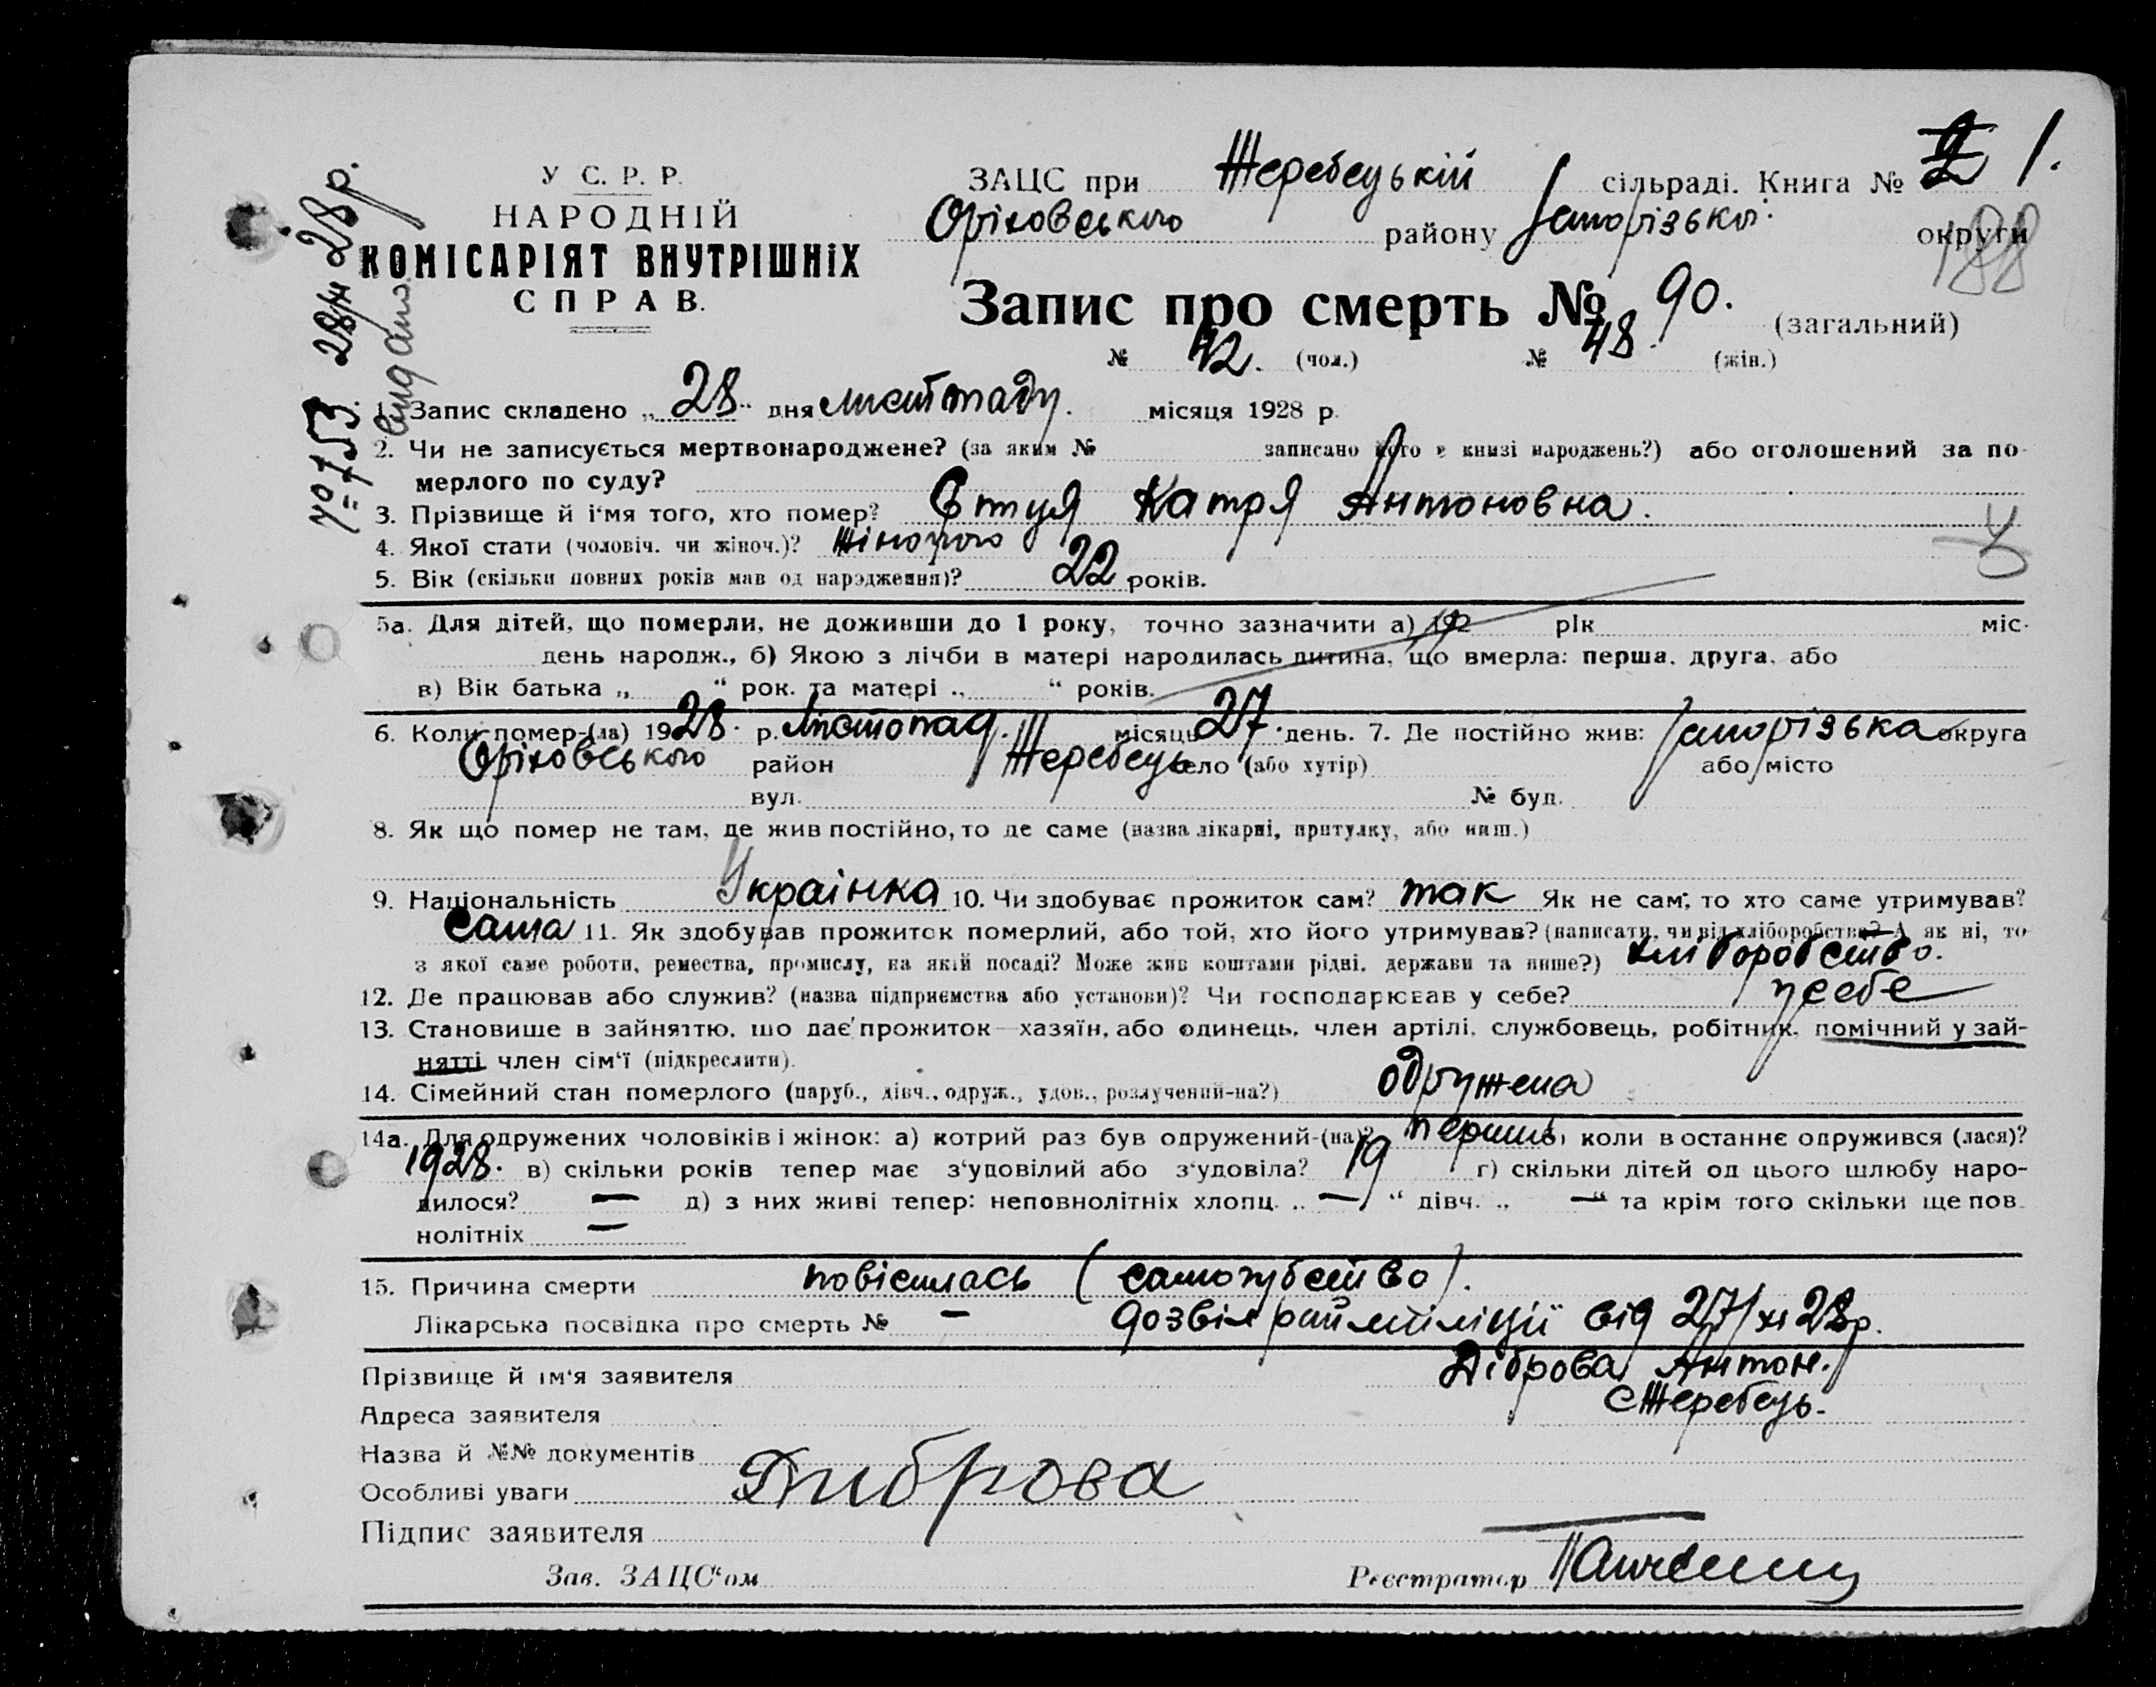 У С. Р. Р.
НАРОДНІЙ
КОМІСАРІЯТ ВНУТРІШНІХ
СПРАВ.
ЗАЦС при Жеребецькій сільраді. Книга № 1.
Оріховського району Запорізької округи
188
Запис про смерть № 90. (загальний)
№ 42. (чол.) № 48. (жін.)
№ 153 28/XI 28 р.
1. Запис складено „28" дня листопаду. місяця 1928 р.
2. Чи не записується мертвонароджене? (за яким № записано його в книзі народжень?) або оголошений за по-
мерлого по суду?
3. Прізвище й і'мя того, хто помер? Катря Антоновна.
4. Якої стати (чоловіч. чи жіноч.)? жіночого
5. Вік (скільки повних років мав од народження)? 22 років.
5а. Для дітей, що померли, не доживши до 1 року, точно зазначити а) 192 рік міс.
день народж., б) Якою з лічби в матері народилась дитина, що вмерла: перша, друга, або
в) Вік батька „ " рок. та матері „ " років.
6. Коли помер-(ла) 1928. р. листопад. місяць 27. день. 7. Де постійно жив: Запорізька округа
Оріховського район Жеребець село (або хутір) або місто
вул. № буд.
8. Як що помер не там, де жив постійно, то де саме (назва лікарні, притулку, або инш.)
9. Національність Українка 10. Чи здобуває прожиток сам? так Як не сам, то хто саме утримував?
сама 11. Як здобував прожиток померлий, або той, хто його утримував? (написати, чи від хліборобства? А як ні, то
з якої саме роботи, ремества, промислу, на якій посаді? Може жив коштами рідні, держави та инше?) хліборобство.
12. Де працював або служив? (назва підприємства або установи)? Чи господарював у себе? у себе
13. Становище в зайняттю, що дає прожиток—хазяїн, або одинець, член артілі, службовець, робітник, помічний у зай-
нятті член сім'ї (підкреслити).
14. Сімейний стан померлого (паруб., дівч., одруж., удов., розлучений-на?) одружена
14а. Для одружених чоловіків і жінок: а) котрий раз був одружений-(на)? перший коли в останнє одружився (лася)?
1928. в) скільки років тепер має з'удовілий або з'удовіла? 19 г) скільки дітей од цього шлюбу наро-
дилося? — д) з них живі тепер: неповнолітніх хлопц. „ — " дівч. „ — " та крім того скільки ще пов-
нолітніх —
15. Причина смерти повісилась (самогубство).
Лікарська посвідка про смерть № — дозвіл райміліції від 27/XI 28 р.
Прізвище й ім'я заявителя Діброва Антон.
Адреса заявителя с Жеребець.
Назва й №№ документів
Особливі уваги
Диброва
Підпис заявителя
Зав. ЗАЦС'ом Реєстратор